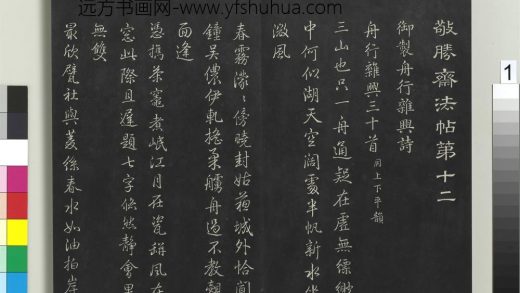 远方书画网-www.yfshuhua.com
敬勝齋法帖第十二
御製舟行雜興詩
舟行雜興三十首 用上下平韻
三山也只一舟通疑在虛無縹緲
中何似湖天空闊處半帆新水坐
微風
春霧濛〻傍曉封姑蘇城外恰聞
鐘吳儂伊軋搖柔艣舟過不教覿
面逢
憑攜茶竈煮岷江月在瓷缾風在
窓此際且遲題七字悠然靜會果
無雙
最欣甓社與菱絲春水如油拍岸
1